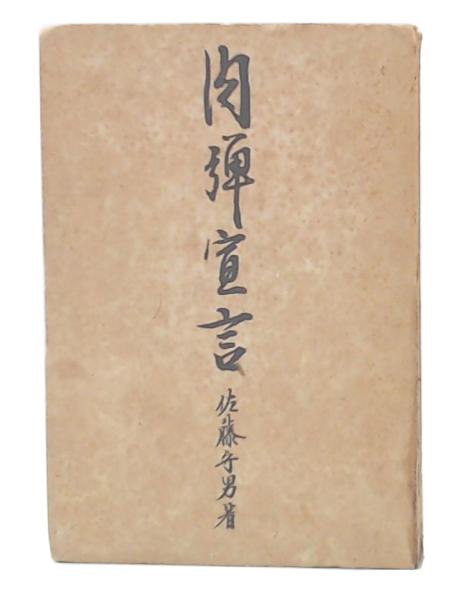 肉彈宣言
佐藤守男著